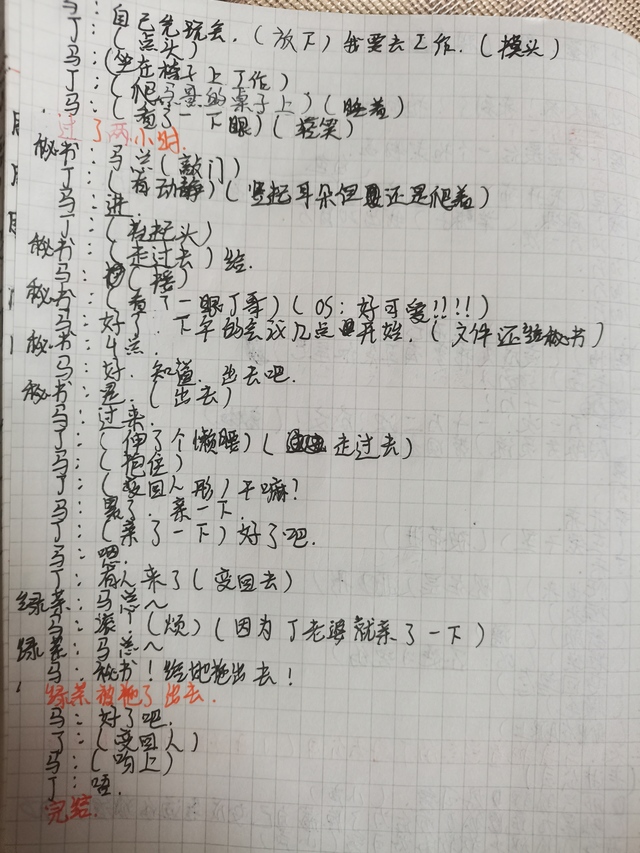 马：自己先玩会.（放下）我要去工作.（摸头）
丁：（点头）
马：（坐在椅子上工作）
丁：（爬马的桌子上）（睡着）
马：（看了一下眼）（轻笑）
过了两小时.
秘书：马总（敲门）
丁：（有动静）（竖起耳朵但还是爬着）
马：进.
丁：（抬起头）
秘书：（走过去）给.
马：（接）
秘书：（看了一眼丁哥）（OS：好可爱!!!!）
马：好了. 下午的会议几点开始.（文件还给秘书）
秘书：4点.
马：好. 知道. 出去吧.
秘书：是.（出去）
马：过来.
丁：（伸了个懒腰）（走过去）
马：（抱住）
丁：（变回人形）干嘛？
马：累了. 亲一下.
丁：（亲了一下）好了吧.
马：嗯.
丁：有人来了（变回去）
绿茶：马总～
马：滚（烦）（因为丁老婆就亲了一下）
绿茶：马总～
马：秘书！给她拖出去！
绿茶被拖了出去.
马：好了吧.
丁：（变回人）
马：（吻上）
丁：唔.
完结.